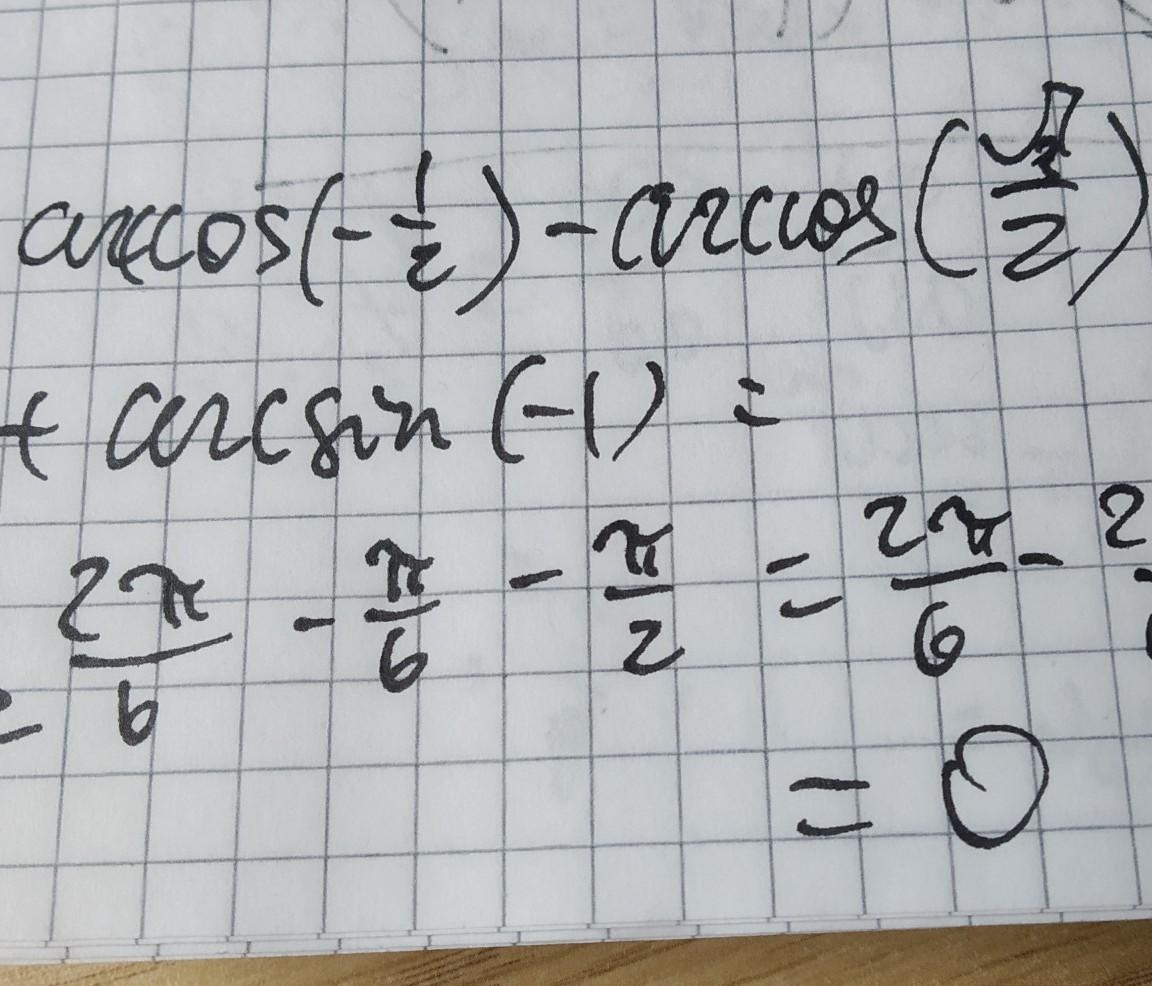 arccos(-1/2) - arccos(√3/2)
+ arcsin(-1) =
= 2π/6 - π/6 - π/2 = 2π/6 - 2
= 0